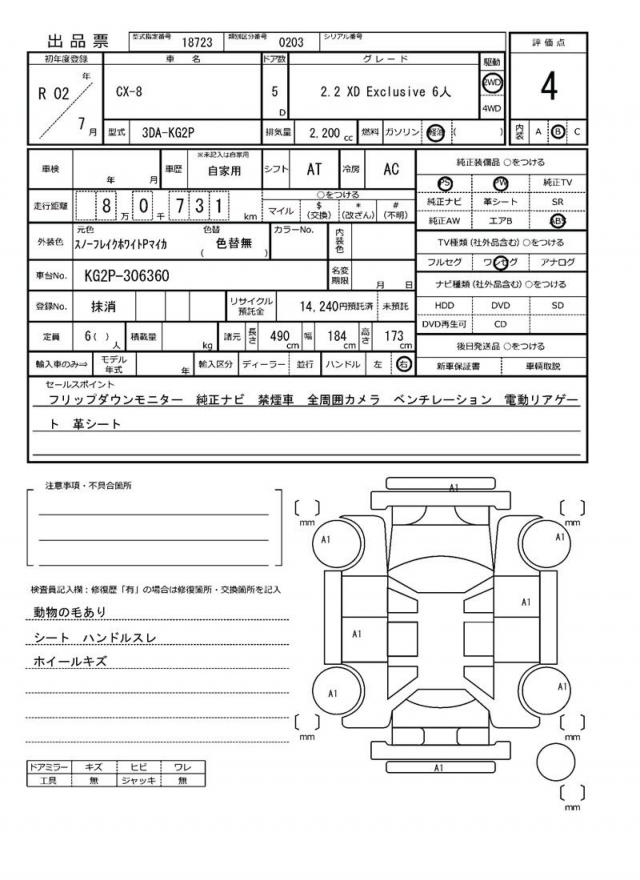 出品票 型式指定番号 18723 類別区分番号 0203 シリアル番号
評価点
4
内装 A B C
初年度登録 車名 ドア数 グレード 駆動
R 02 年 7 月 CX-8 5 D 2.2 XD Exclusive 6人 2WD 4WD
型式 3DA-KG2P 排気量 2,200 cc 燃料 ガソリン 軽油 ( )
車検 年 月 車歴 ※未記入は自家用 自家用 シフト AT 冷房 AC
走行距離 8 万 0 千 7 3 1 km ○をつける
マイル $ (交換) * (改ざん) # (不明)
外装色 元色 スノーフレイクホワイトPマイカ 色替 ( 色替無 ) カラーNo. 内装色
車台No. KG2P-306360 名変期限 月 日
登録No. 抹消 リサイクル預託金 14,240円預託済 未預託
定員 6( ) 人 積載量 kg 諸元 長さ 490 cm 幅 184 cm 高さ 173 cm
輸入車のみ⇒ モデル年式 年 輸入区分 ディーラー 並行 ハンドル 左 右
純正装備品 ○をつける
PS PW 純正TV
純正ナビ 革シート SR
純正AW エアB ABS
TV種類(社外品含む) ○をつける
フルセグ ワンセグ アナログ
ナビ種類(社外品含む) ○をつける
HDD DVD SD
DVD再生可 CD
後日発送品 ○をつける
新車保証書 車輌取説
セールスポイント
フリップダウンモニター 純正ナビ 禁煙車 全周囲カメラ ベンチレーション 電動リアゲー
ト 革シート
注意事項・不具合箇所
検査員記入欄：修復歴「有」の場合は修復箇所・交換箇所を記入
動物の毛あり
シート ハンドルスレ
ホイールキズ
ドアミラー キズ ヒビ ワレ
工具 無 ジャッキ 無
A1
mm mm
A1 A1
A1 A1
A1 A1
mm mm
A1
mm